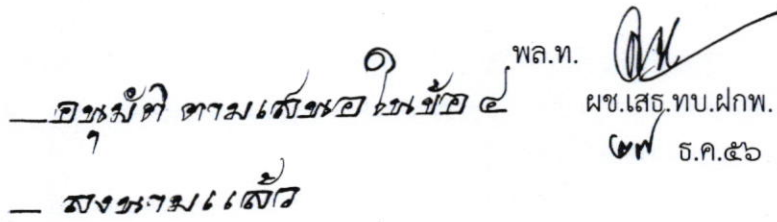 พล.ท.
– อนุมัติ ตามเสนอในข้อ ๔
ผช.เสธ.ทบ.ฝกพ.
๒๗ ธ.ค.๕๖
– ลงนามแล้ว